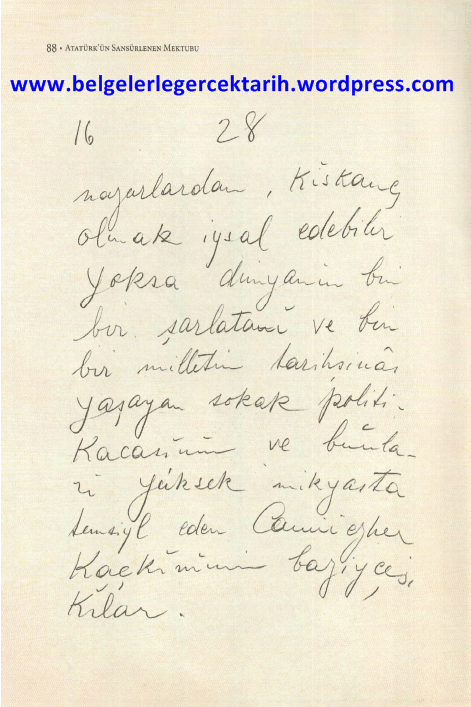 88 • ATATÜRK'ÜN SANSÜRLENEN MEKTUBU
www.belgelerlegercektarih.wordpress.com
16 28
nazarlardan, Kiskanç
olmak iysal edebilir
Yoksa dünyanin bin
bir şarlatanĭ ve bin
bir milletin tarihsinâs
yaşayan sokak politi-
Kacasĭnin ve bunla-
ri yüksek mikyasta
temsiyl eden Camiiezher
Kaçkĭnĭnin baziyçesi
Kĭlar.